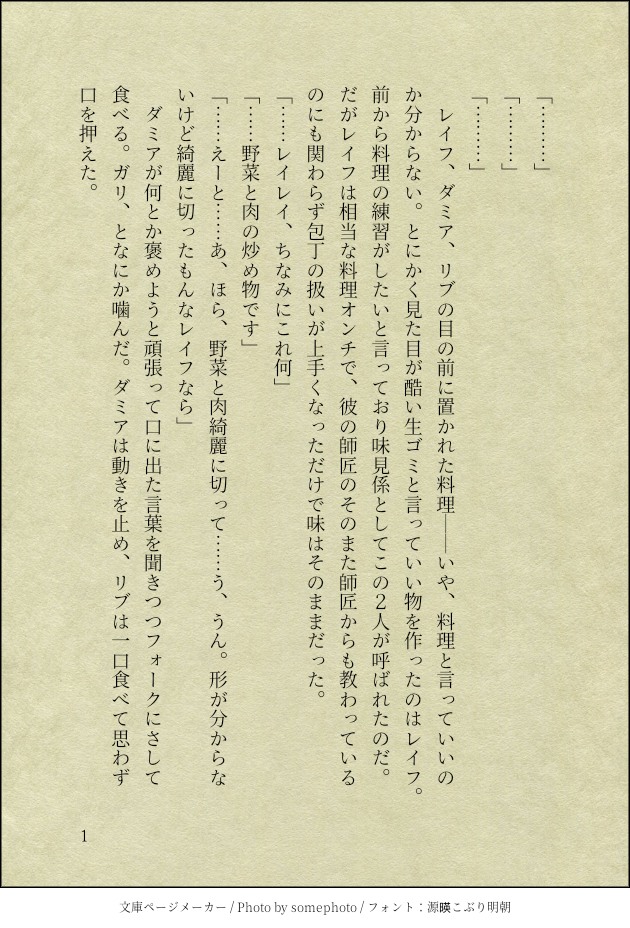 「…………」
「…………」
「…………」
　レイフ、ダミア、リブの目の前に置かれた料理――いや、料理と言っていいの
か分からない。とにかく見た目が酷い生ゴミと言っていい物を作ったのはレイフ。
前から料理の練習がしたいと言っており味見係としてこの２人が呼ばれたのだ。
だがレイフは相当な料理オンチで、彼の師匠のそのまた師匠からも教わっている
のにも関わらず包丁の扱いが上手くなっただけで味はそのままだった。
「……レイレイ、ちなみにこれ何」
「……野菜と肉の炒め物です」
「……えーと……あ、ほら、野菜と肉綺麗に切って……う、うん。形が分からな
いけど綺麗に切ったもんなレイフなら」
　ダミアが何とか褒めようと頑張って口に出た言葉を聞きつつフォークにさして
食べる。ガリ、となにか噛んだ。ダミアは動きを止め、リブは一口食べて思わず
口を押えた。
1
文庫ページメーカー / Photo by somephoto / フォント：源暎こぶり明朝